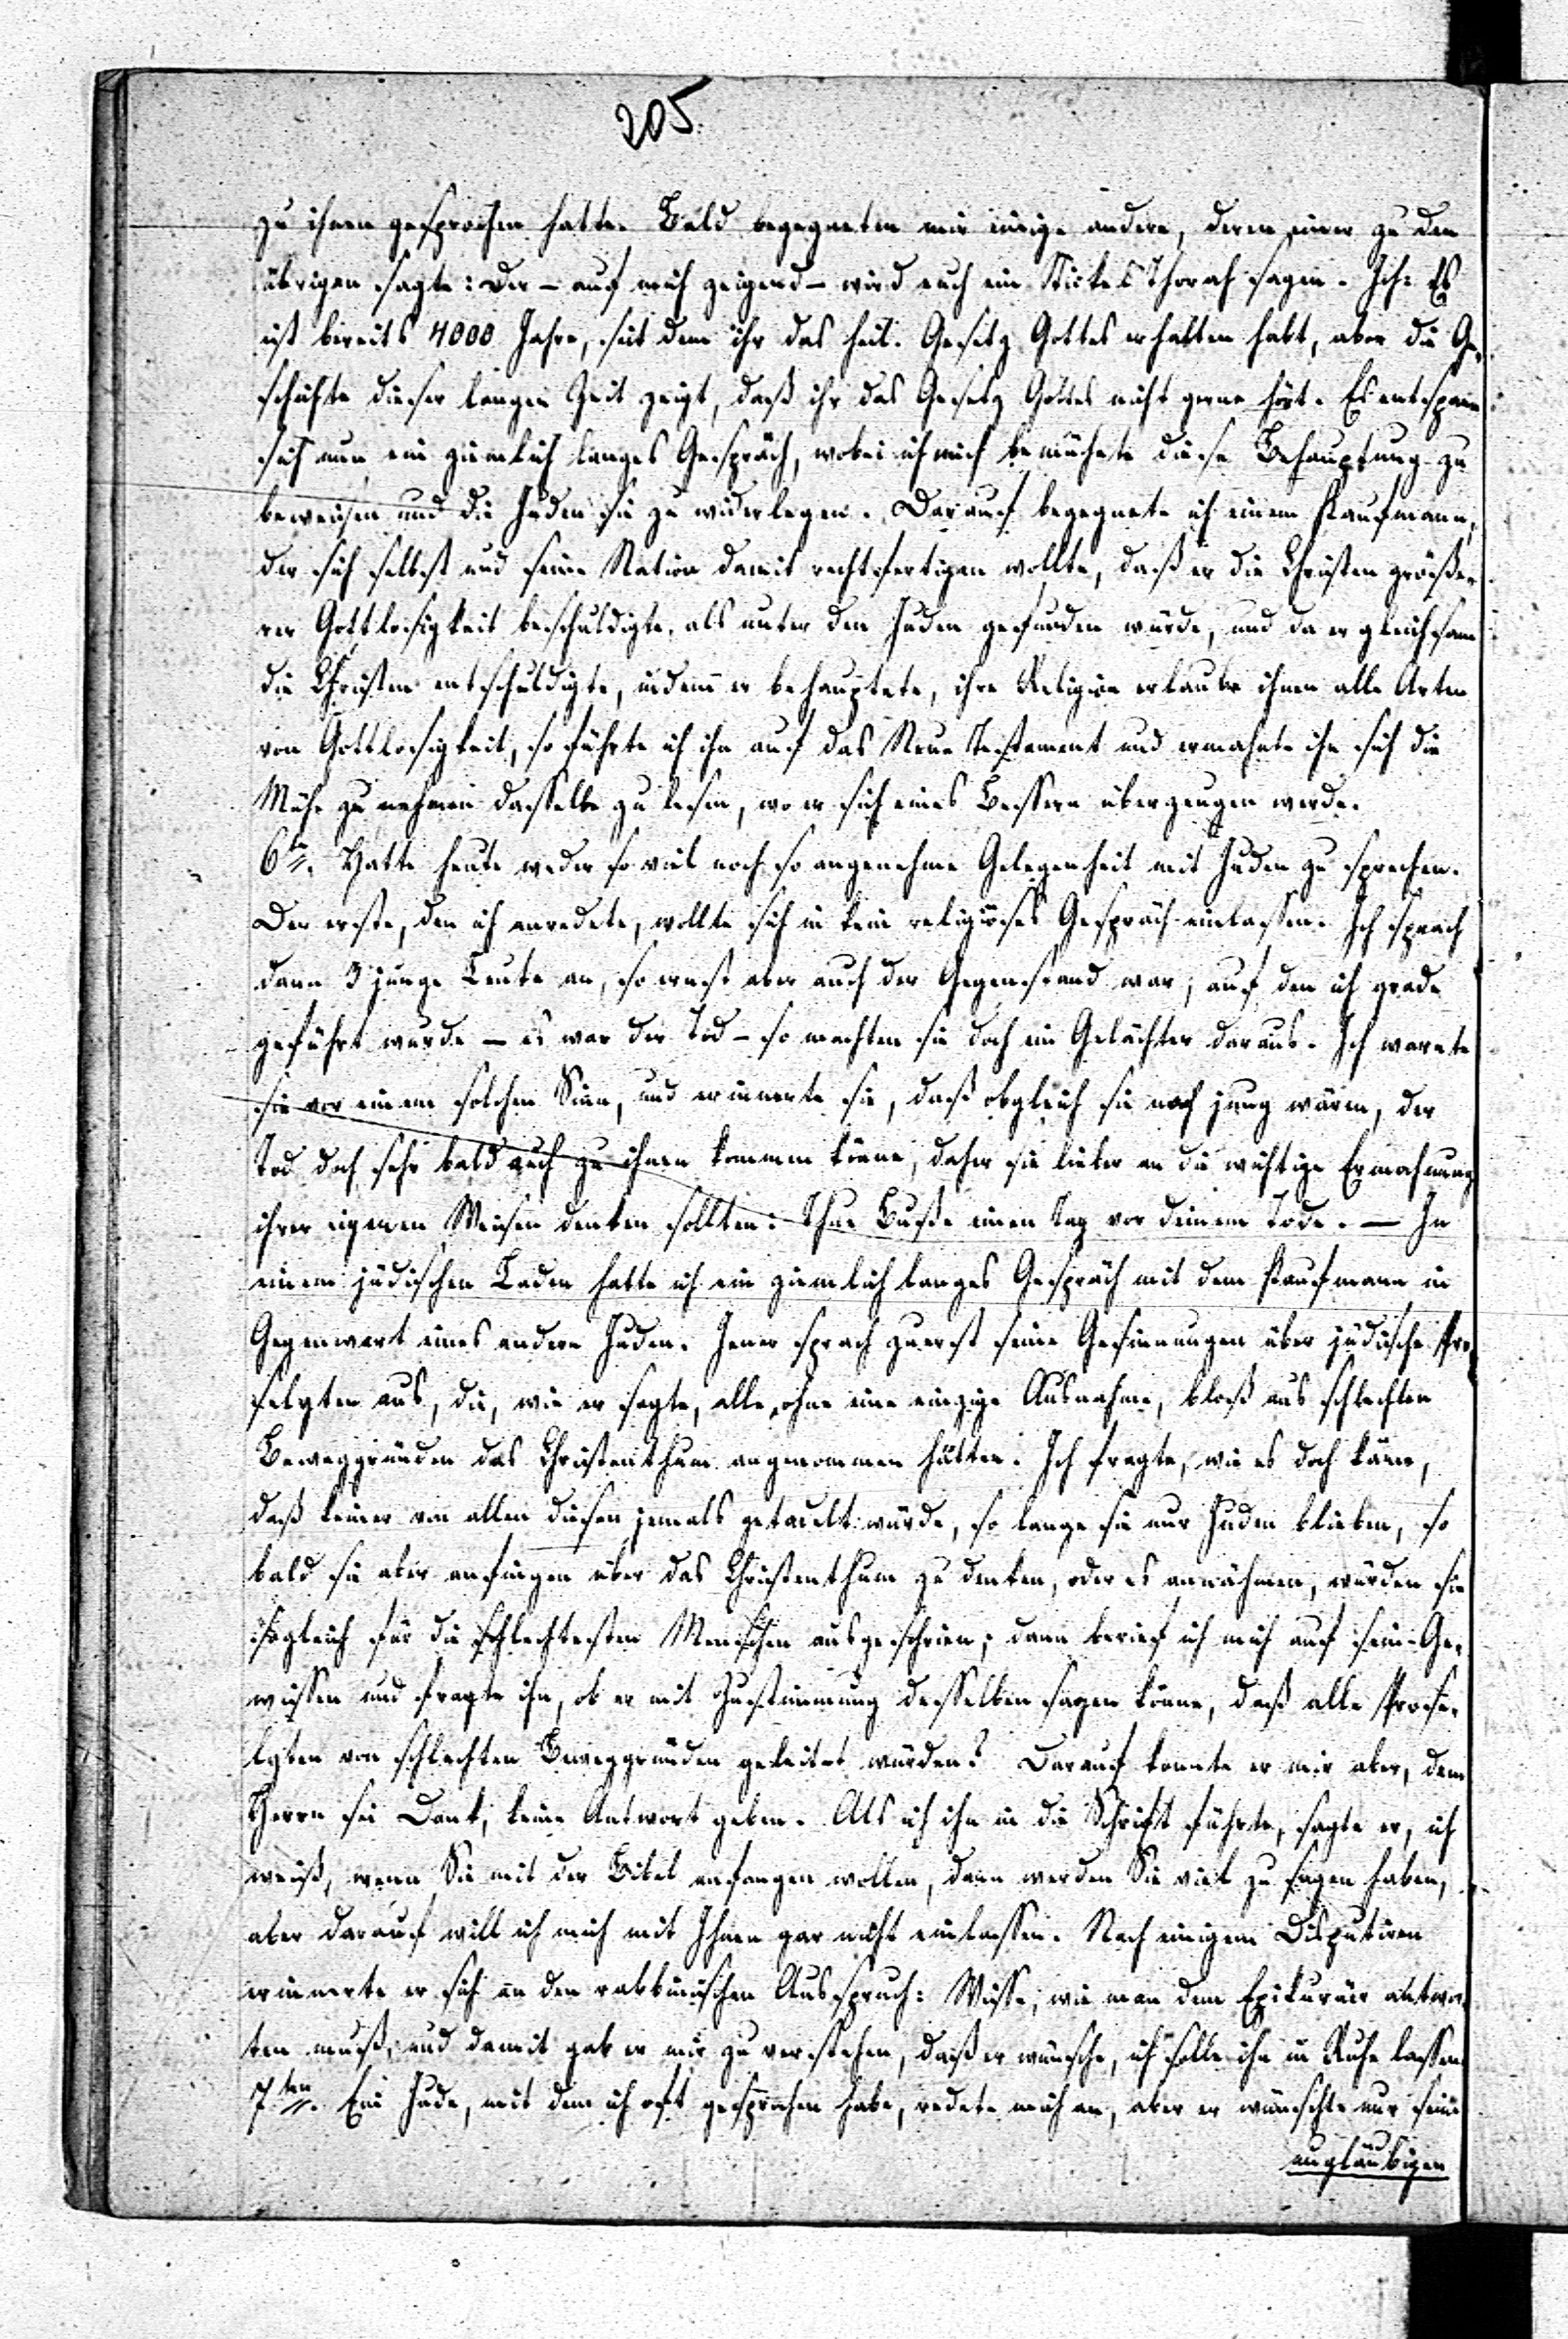 205.
zu ihnen gesprochen hatte. Bald begegneten mir einige andere, deren einer zu den
übrigen sagte: Der – auf mich zeigend – wird euch ein Stickel Thorah sagen. Ich: Es
ist bereits 4000 Jahre, seit dem ihr das heil. Gesetz Gottes erhalten habt, aber die Ge-
schichte dieser langen Zeit zeigt, daß ihr das Gesetz Gottes nicht gerne hört. Es entspann
sich nun ein ziemlich langes Gespräch, wobei ich mich bemühete diese Behauptung zu
beweisen und die Juden sie zu widerlegen. Darauf begegnete ich einem Kaufmann,
der sich selbst und seine Nation damit rechtfertigen wollte, daß er die Christen größe-
rer Gottlosigkeit beschuldigte, als unter den Juden gefunden würde, und da er gleichsam
die Christen entschuldigte, indem er behauptete, ihre Religion erlaube ihnen alle Arten
von Gottlosigkeit, so führte ich ihn auf das Neue Testament und ermahnte ihn sich die
Mühe zu nehmen dasselbe zu lesen, wo er sich eines Bessern überzeugen werde.
6te. Hatte heute weder so viel noch so angenehme Gelegenheit mit Juden zu sprechen.
Der erste, den ich anredete, wollte sich in kein religiöses Gespräch einlassen. Ich sprach
dann 3 junge Leute an, so ernst aber auch der Gegenstand war, auf den ich grade
geführt wurde – es war der Tod – so machten sie doch ein Gelächter daraus. Ich warnte
sie vor einem solchen Sinn, und erinnerte sie, daß obgleich sie noch jung wären, der
Tod doch sehr bald auch zu ihnen kommen könne, daher sie lieber an die wichtige Ermahnung
ihrer eigenen Weisen denken sollten: Thue Buße einen Tag vor deinem Tode. – In
einem jüdischen Laden hatte ich ein ziemlich langes Gespräch mit dem Kaufmann in
Gegenwart eines andern Juden. Jener sprach zuerst seine Gesinnungen über jüdische Pro-
selyten aus, die, wie er sagte, alle, ohne eine einzige Ausnahme, bloß aus schlechten
Beweggründen das Christenthum angenommen hätten. Ich fragte, wie es doch käme,
daß keiner von allen diesen jemals getadelt würde, so lange sie nur Juden blieben, so
bald sie aber anfingen über das Christenthum zu denken, oder es annähmen, würden sie
sogleich für die schlechtesten Menschen ausgeschrien; dann berief ich mich auf sein Ge-
wissen und fragte ihn, ob er mit Zustimmung desselben sagen könne, daß alle Prose-
lyten von schlechten Beweggründen geleitet würden? Darauf konnte er mir aber, dem
Herrn sei Dank, keine Antwort geben. Als ich ihn in die Schrift führte, sagte er, ich
weiß, wenn Sie mit der Bibel anfangen wollen, dann werden Sie viel zu sagen haben,
aber darauf will ich mich mit Ihnen gar nicht einlassen. Nach einigem Disputiren
erinnerte er sich an den rabbinischen Ausspruch: Wisse, wie man dem Epikuräer antwor-
ten muß, und damit gab er mir zu verstehen, daß er wünsche, ich solle ihn in Ruhe lassen.
7ten. Ein Jude, mit dem ich oft gesprochen habe, redete mich an, aber er wünschte nur seine
ungläubigen